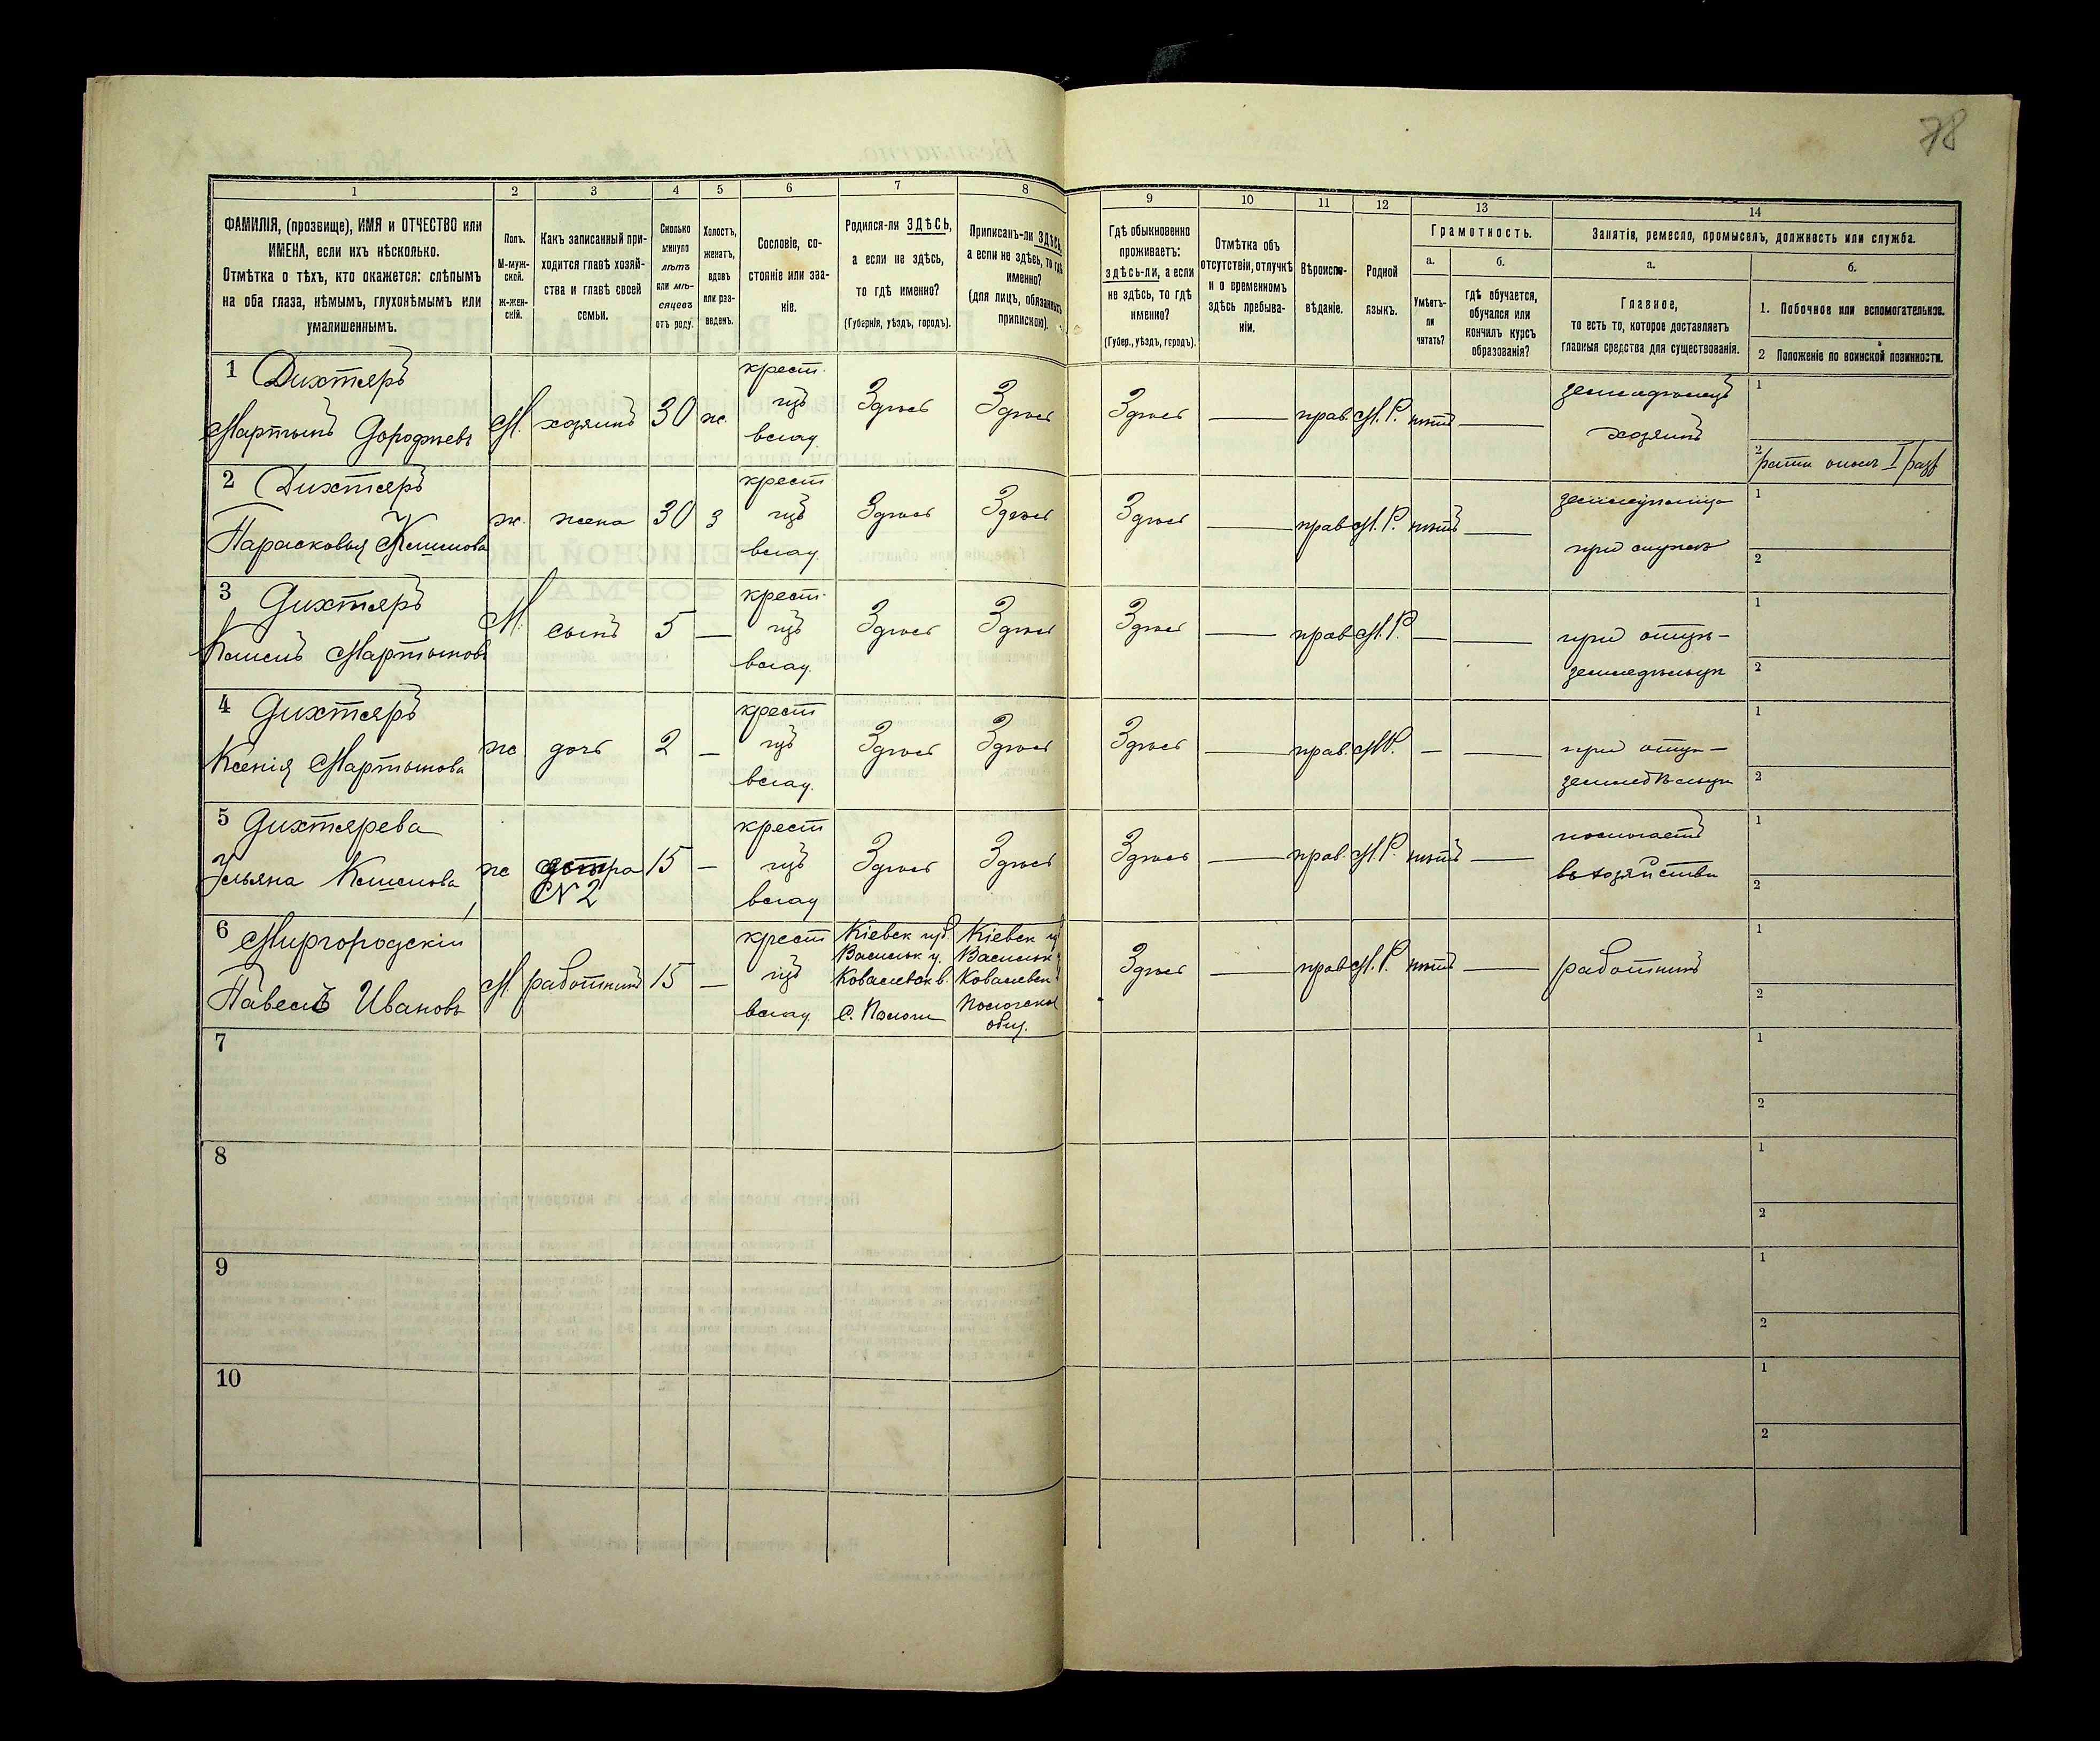 78
1 2 3 4 5 6 7 8 9 10 11 12 13 14
ФАМИЛІЯ, (прозвище), ИМЯ и ОТЧЕСТВО или
ИМЕНА, если ихъ нѣсколько.
Отмѣтка о тѣхъ, кто окажется: слѣпымъ
на оба глаза, нѣмымъ, глухонѣмымъ или
умалишеннымъ.
Полъ.
М-муж-
ской.
Ж-жен-
скій.
Какъ записанный при-
ходится главѣ хозяй-
ства и главѣ своей
семьи.
Сколько
минуло
лѣтъ
или мѣ-
сяцевъ
отъ роду.
Холостъ,
женатъ,
вдовъ
или раз-
веденъ.
Сословіе, со-
стояніе или зва-
ніе.
Родился-ли ЗДѢСЬ,
а если не здѣсь,
то гдѣ именно?
(Губернія, уѣздъ, городъ).
Приписанъ-ли ЗДѢСЬ,
а если не здѣсь, то гдѣ
именно?
(для лицъ, обязанныхъ
припискою).
Гдѣ обыкновенно
проживаетъ:
здѣсь-ли, а если
не здѣсь, то гдѣ
именно?
(Губер., уѣздъ, городъ).
Отмѣтка объ
отсутствіи, отлучкѣ
и о временномъ
здѣсь пребыва-
ніи.
Вѣроиспо-
вѣданіе.
Родной
языкъ.
Грамотность.
а.
Умѣетъ-
ли
читать?
б.
гдѣ обучается,
обучался или
кончилъ курсъ
образованія?
Занятія, ремесло, промыселъ, должность или служба.
а.
Главное,
то есть то, которое доставляетъ
главныя средства для существованія.
б.
1. Побочное или вспомогательное.
2 Положеніе по воинской повинности.
1 Дихтяръ
Мартынъ
М. хозяинъ 30 ж.
крест.
Здѣсь Здѣсь Здѣсь — прав. М.Р. нѣтъ —
земледѣлецъ
хозяинъ
1
2
2 Дихтяръ
Парасковья
ж. жена 30 з
крест
Здѣсь Здѣсь Здѣсь — прав М.Р. нѣтъ —
1
2
3 Дихтяръ
Мартыновъ
М. сынъ 5 —
крест.
Здѣсь Здѣсь Здѣсь — прав М.Р. — —
при отцѣ —
земледѣльцѣ
1
2
4 Дихтяръ
Ксенія Мартынова
ж дочь 2 —
крест
Здѣсь Здѣсь Здѣсь — прав. М.Р. — —
при отцѣ —
земледѣльцѣ
1
2
5 Дихтярева
Ульяна
ж сестра 15 —
№ 2
крест
Здѣсь Здѣсь Здѣсь — прав. М.Р. нѣтъ —
помогаетъ
въ хозяйствѣ
1
2
6 Миргородскій
Павелъ Ивановъ
М. работникъ 15 —
крест
Кіевск губ.
Васильк у.
Ковалевск в.
С. Пологи
Кіевск
Васильк
Ковалевск
Пологское
общ.
Здѣсь — прав М.Р. нѣтъ — работникъ
1
2
7
1
2
8
1
2
9
1
2
10
1
2